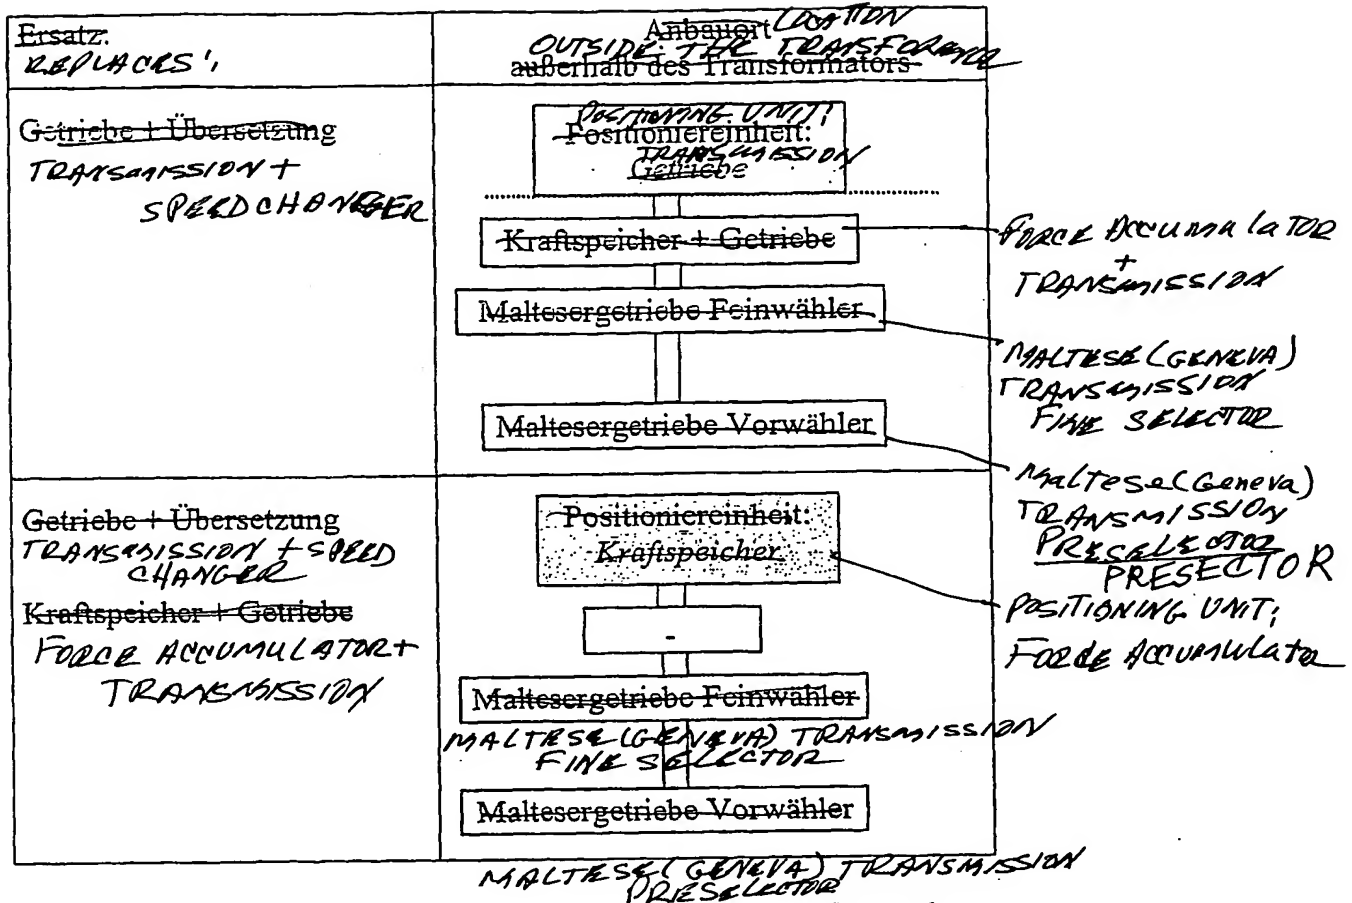 Ersatz:
REPLACES:
Anbauort LOCATION
OUTSIDE THE TRANSFORMER
außerhalb des Transformators
Getriebe + Übersetzung
TRANSMISSION +
SPEED CHANGER
POSITIONING UNIT:
Positioniereinheit:
TRANSMISSION
Getriebe
Kraftspeicher + Getriebe
FORCE ACCUMULATOR
+
TRANSMISSION
Maltesergetriebe Feinwähler
MALTESE (GENEVA)
TRANSMISSION
FINE SELECTOR
Maltesergetriebe Vorwähler
Maltese (Geneva)
TRANSMISSION
PRESELECTOR
PRESECTOR
Getriebe + Übersetzung
TRANSMISSION + SPEED
CHANGER
Kraftspeicher + Getriebe
FORCE ACCUMULATOR +
TRANSMISSION
Positioniereinheit:
Kraftspeicher
POSITIONING UNIT:
FORCE ACCUMULATOR
-
Maltesergetriebe Feinwähler
MALTESE (GENEVA) TRANSMISSION
FINE SELECTOR
Maltesergetriebe Vorwähler
MALTESE (GENEVA) TRANSMISSION
PRESELECTOR